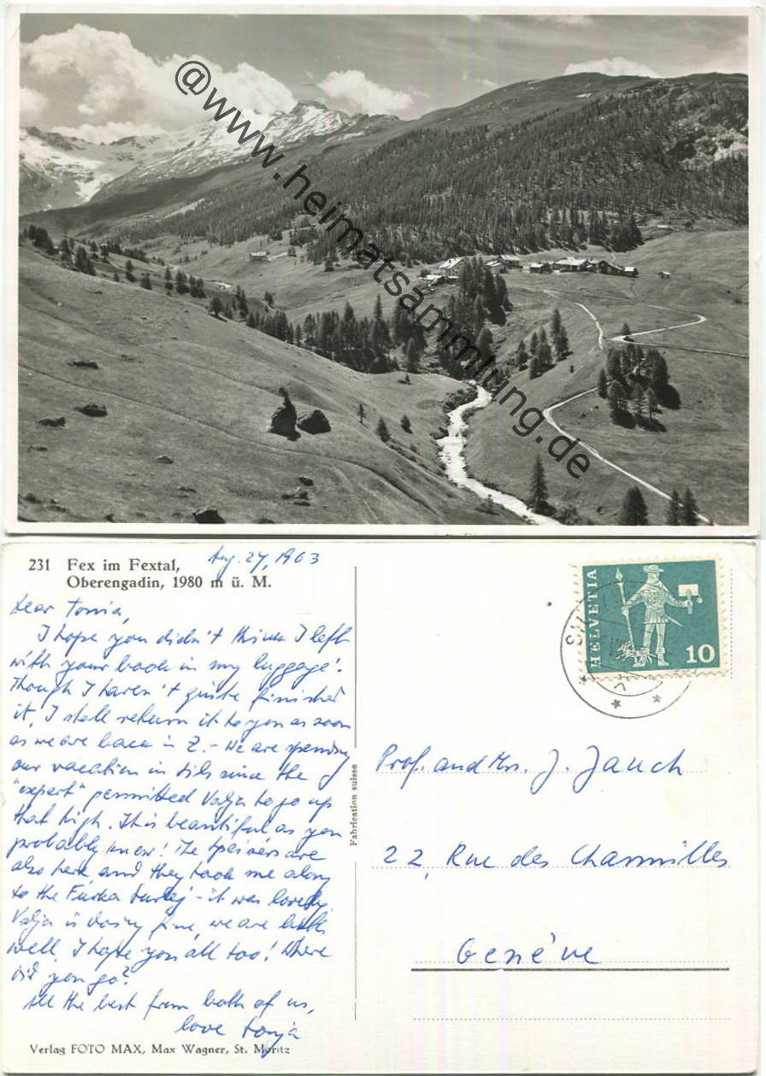 @www.heimatsammlung.de
231 Fex im Fextal,
Oberengadin, 1980 m ü. M.
Aug. 27, 1963
Dear Tonia,
I hope you didn't think I left
with your book in my luggage!
Though I haven't quite finished
it, I shall return it to you as soon
as we are back in Z. - We are spending
our vacation in Sils since the
"expert" permitted Valja to go up
that high. It is beautiful as you
probably know! The are
also here and they took me along
to the Furka - it was lovely.
Valja is doing fine, we are both
well. I hope you all too! Where
did you go?
All the best from both of us,
love Tonja
Verlag FOTO MAX, Max Wagner, St. Moritz
Fabrication suisse
HELVETIA
10
SILS
Prof. and Mrs. J. Jauch
22, Rue des Charmilles
Genève